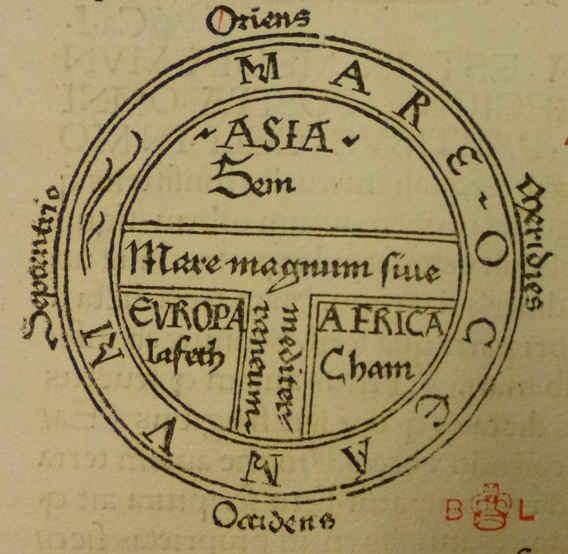 Oriens
MARE OCCEANVM
ASIA
Sem
Septentrio
Meridies
Mare magnum siue
mediter
raneum
EVROPA
Iafeth
AFRICA
Cham
Occidens
B L